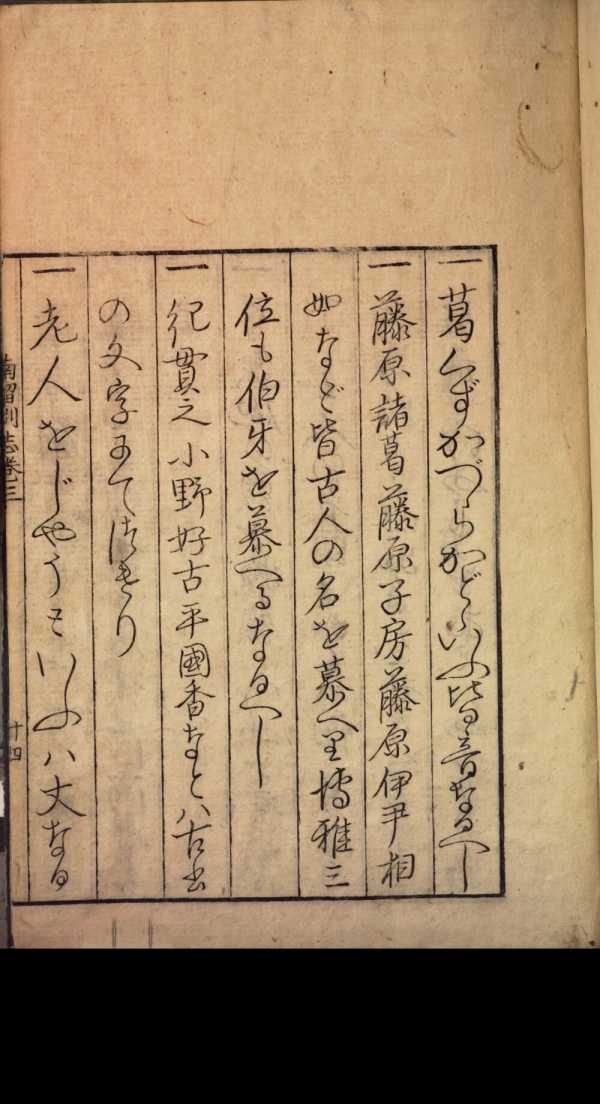 一葛くずかづらかどらいふ皆音なるへし
一藤原諸葛藤原子房藤原伊尹相
如など皆古人の名を慕へり博雅三
位も伯牙を慕へるなるへし
一紀貫之小野好古平國香なとハ古書
の文字にてつけり
一老人をじやうといふハ丈なる
南留別志巻三
十四